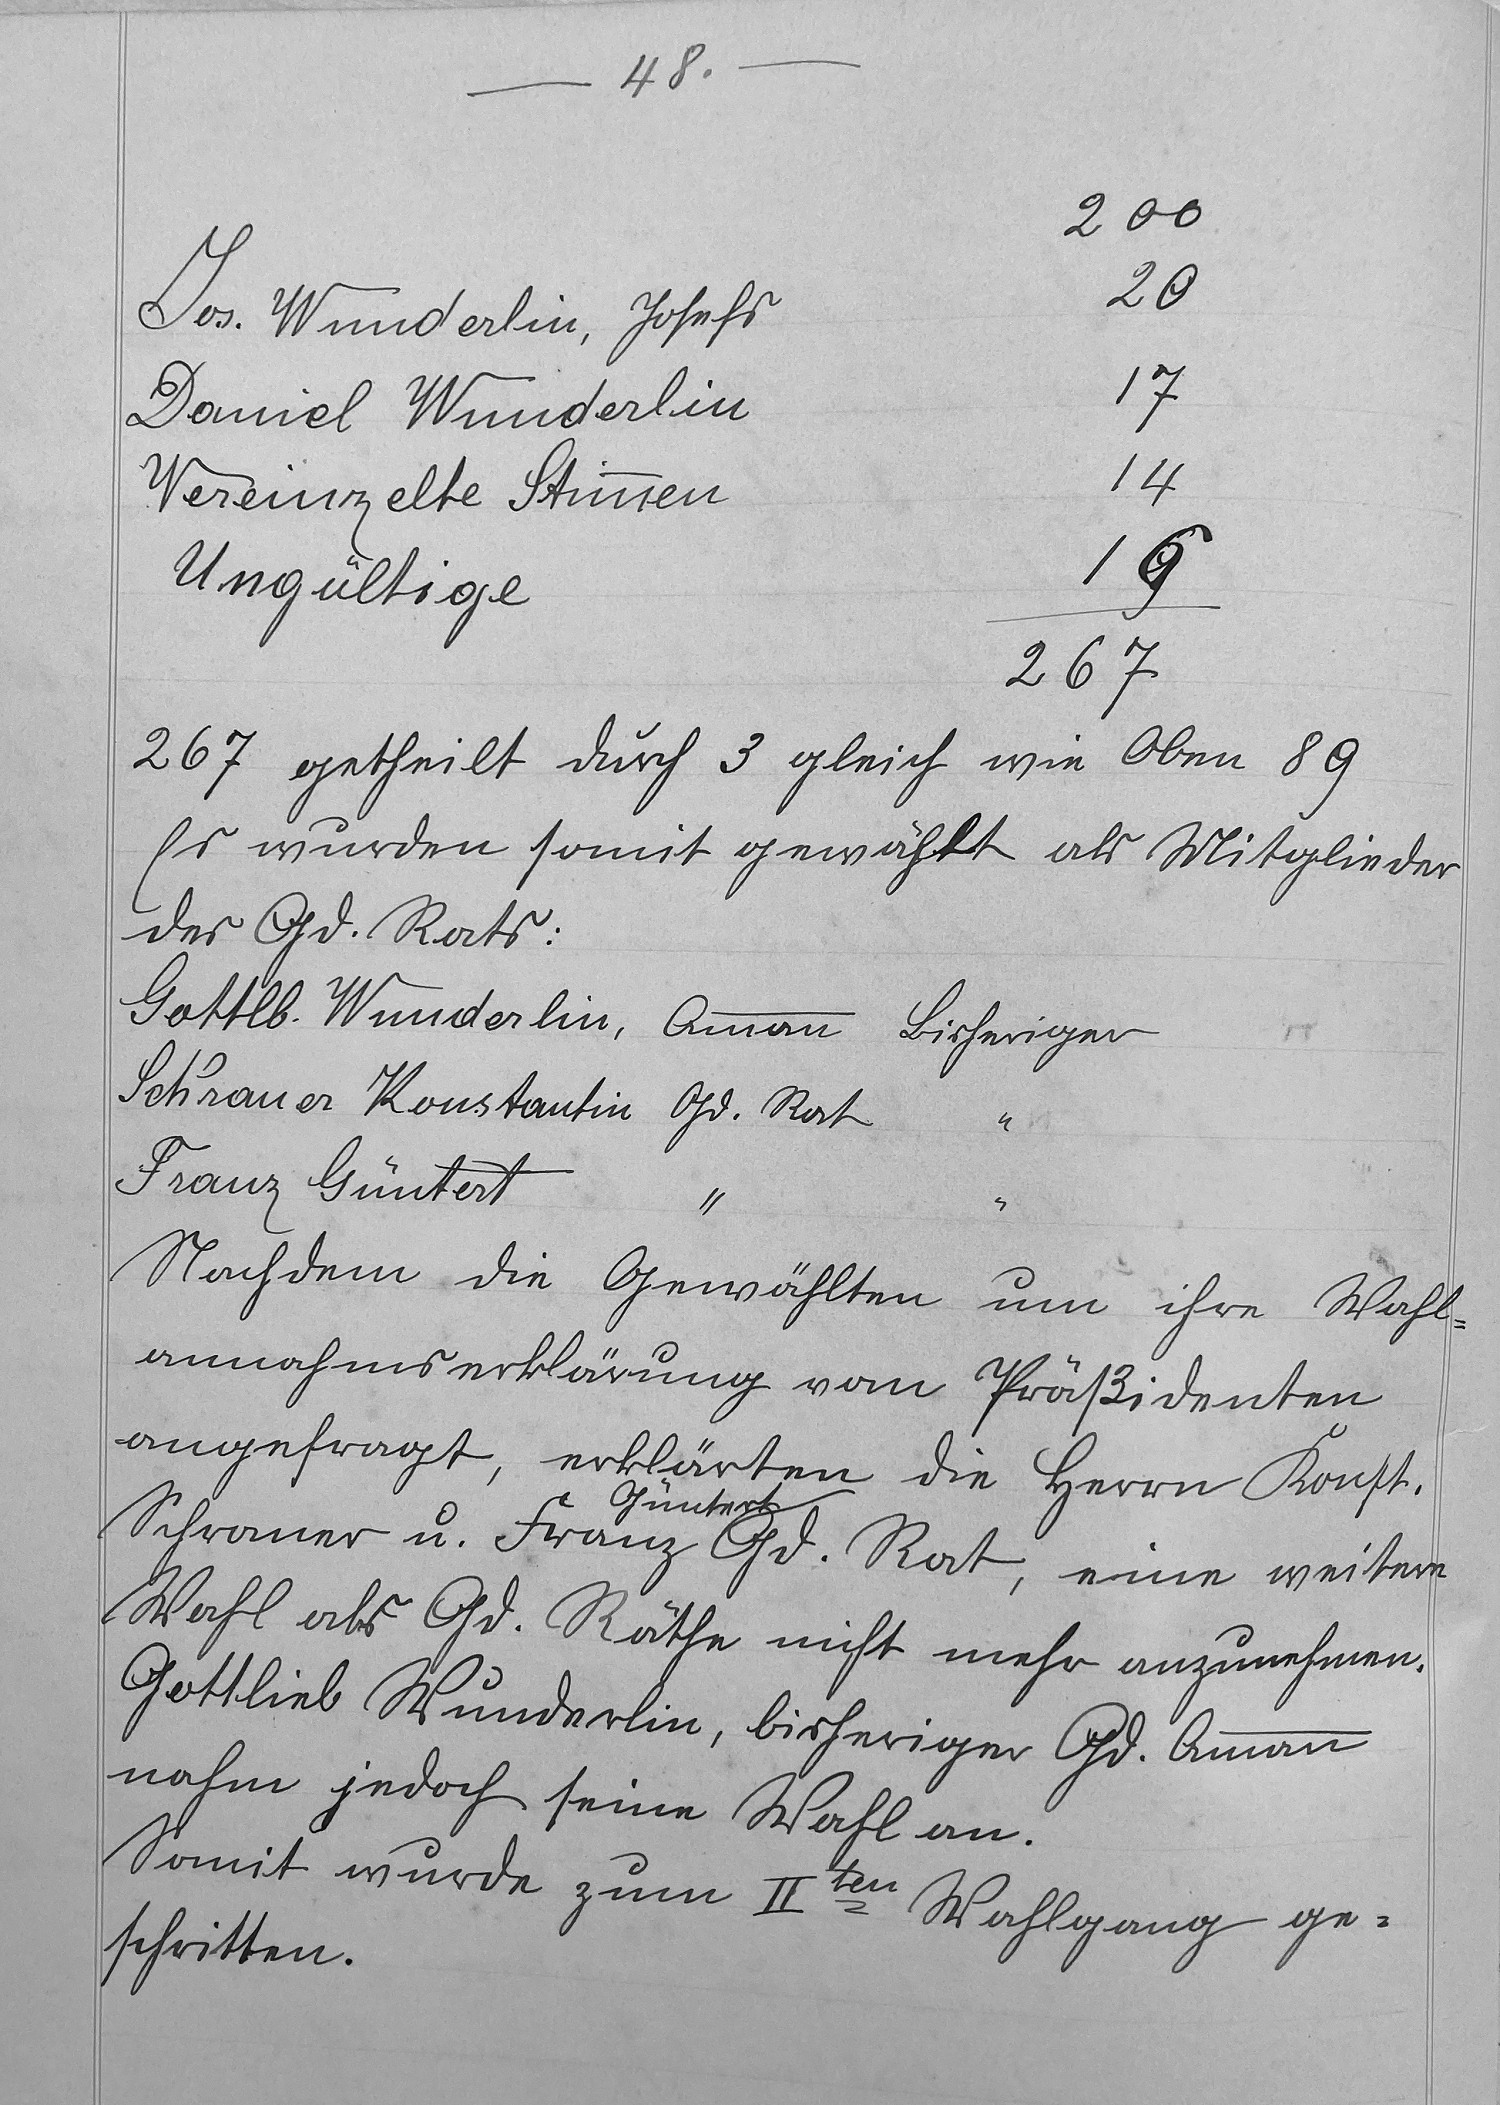 — 48. —
200
Jos. Wunderlin, Josefs 20
Daniel Wunderlin 17
Vereinzelte Stim̅en 14
Ungültige 16
267
267 getheilt durch 3 gleich wie Oben 89
Es wurden somit gewählt als Mitglieder
des Gd. Rats:
Gottlb. Wunderlin, Am̅an̅ Bisheriger
Schraner Konstantin Gd. Rat "
Franz Güntert " "
Nachdem die Gewählten um ihre Wahl=
annahmserklärung vom Präßidenten
angefragt, erklärten die Herrn Konst.
Schraner u. Franz Güntert Gd. Rat, eine weitere
Wahl als Gd. Räthe nicht mehr anzunehmen.
Gottlieb Wunderlin, bisheriger Gd. Am̅an̅
nahm jedoch seine Wahl an.
Somit wurde zum II ten Wahlgang ge=
schritten.